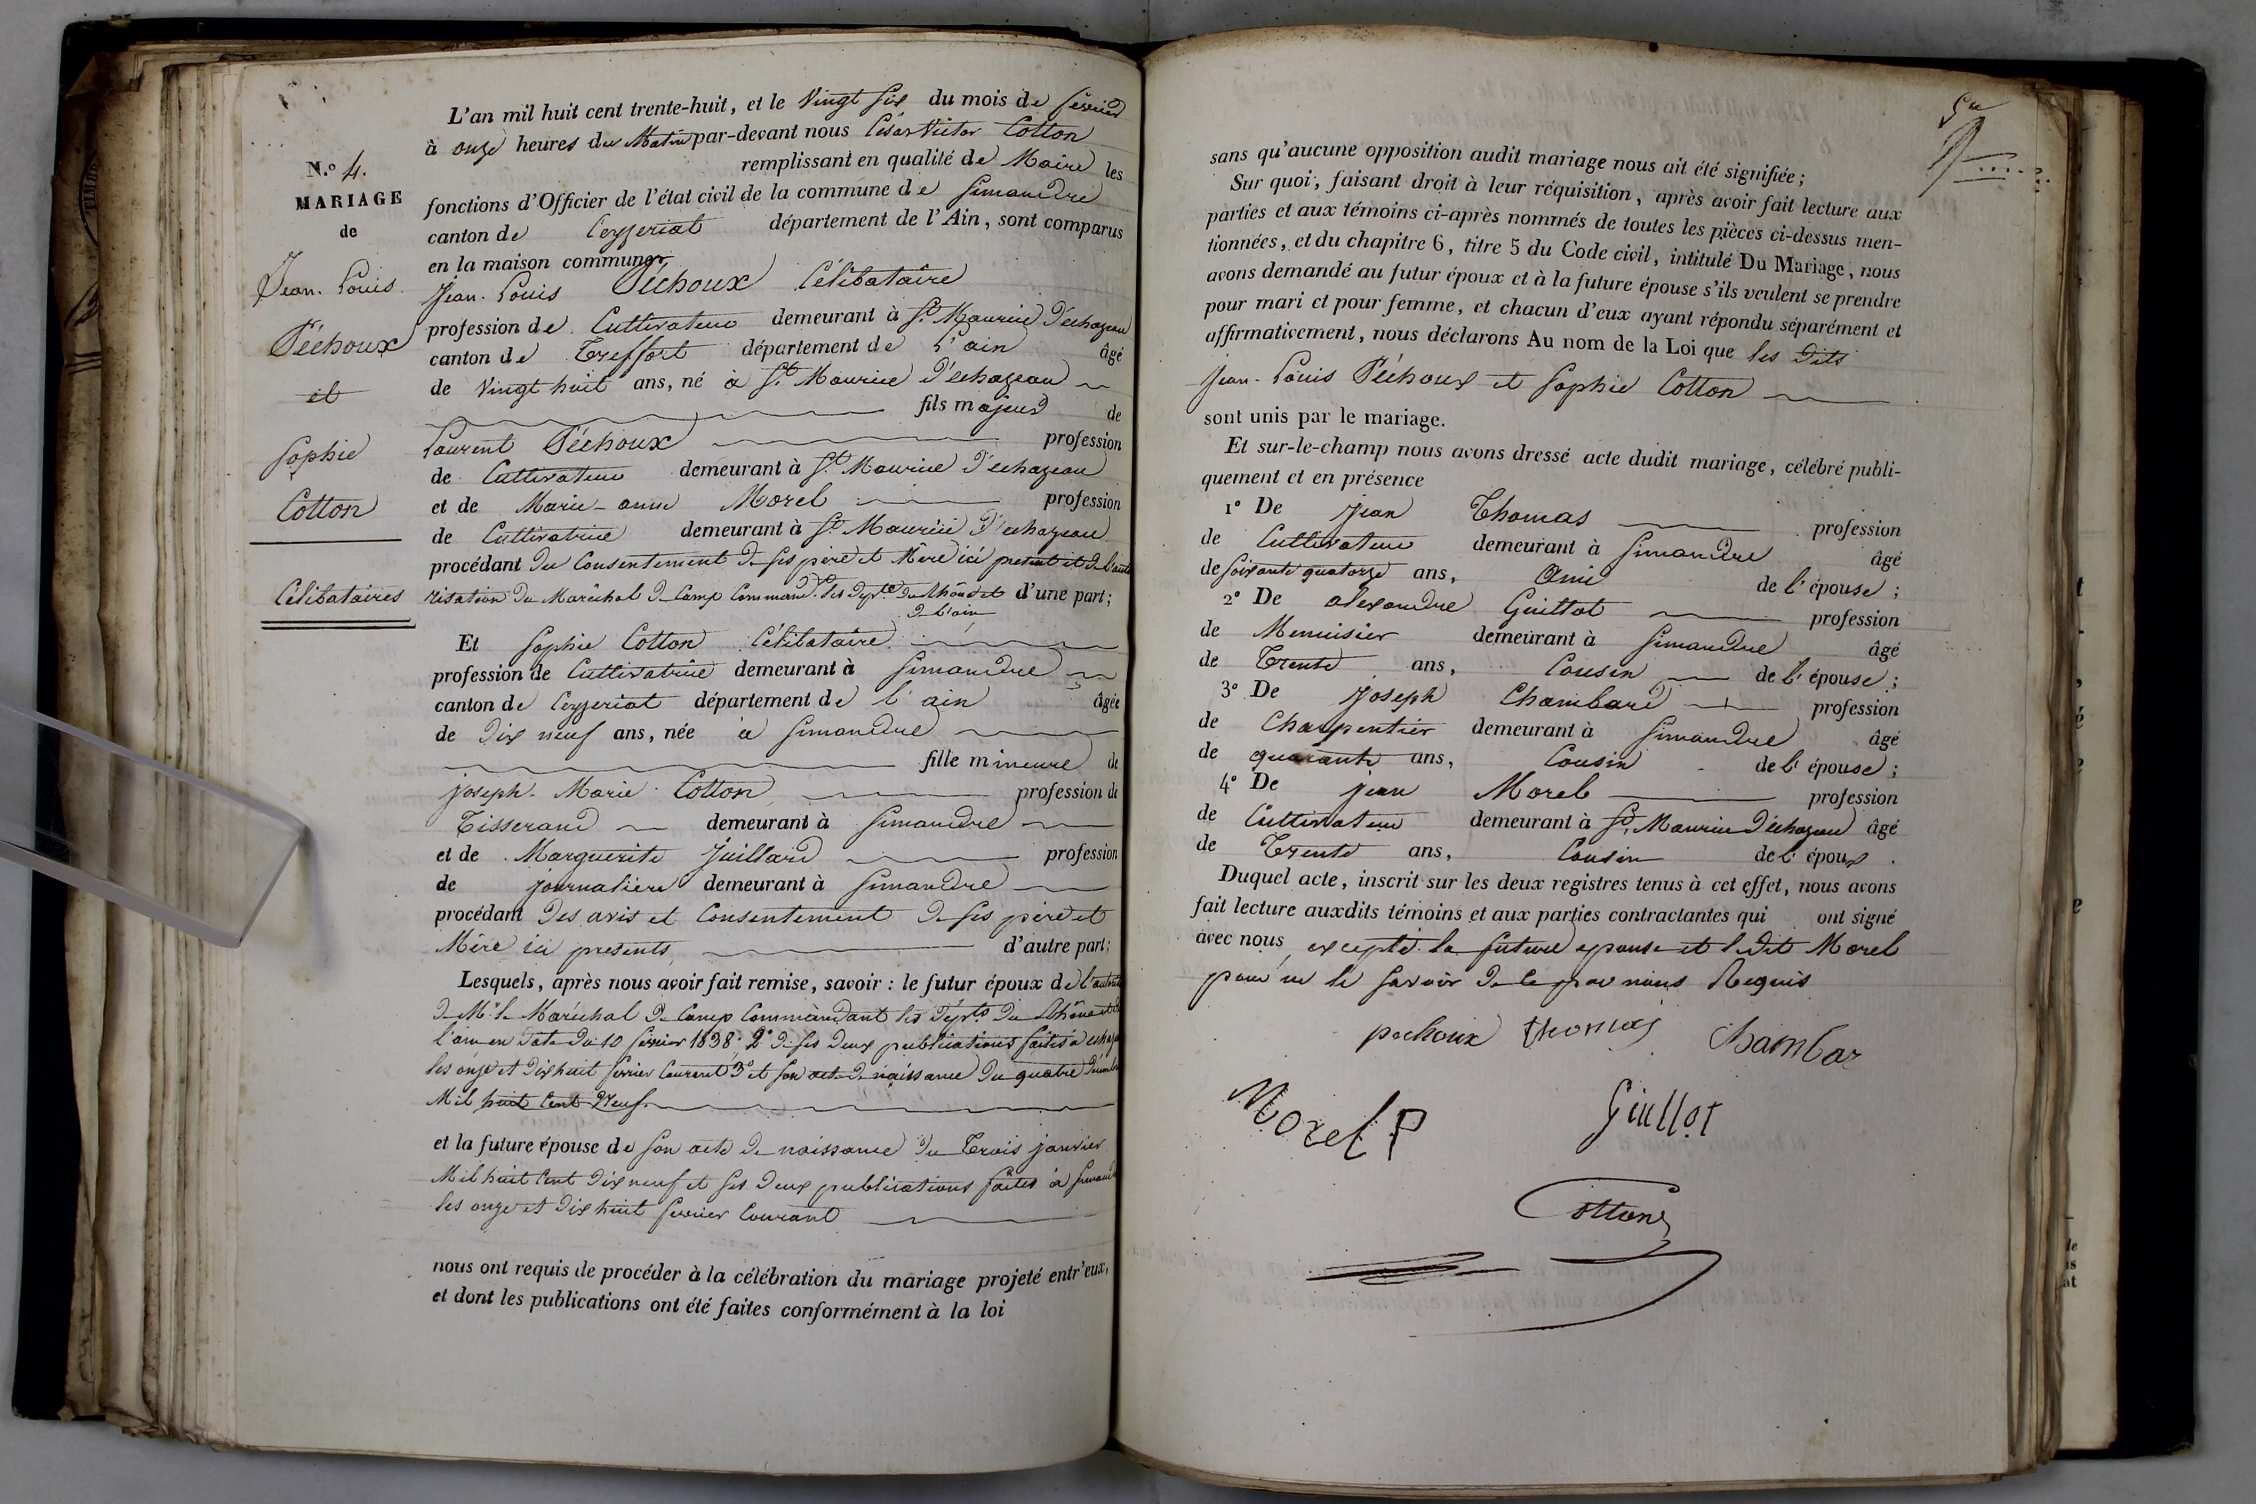 N.° 4.
MARIAGE
de
Jean-Louis
Péchoux
et
Sophie
Cotton
Célibataires
L'an mil huit cent trente-huit, et le vingt six du mois de février
à onze heures du Matin par-devant nous César Victor Cotton
remplissant en qualité de Maire les
fonctions d'Officier de l'état civil de la commune de Simandre
canton de Ceyzeriat département de l'Ain, sont comparus
en la maison commune,
Jean-Louis Péchoux Célibataire
profession de Cultivateur demeurant à St. Maurice d'échazeau
canton de Treffort département de l'ain âgé
de vingt huit ans, né à St. Maurice d'échazeau
fils majeur de
Laurent Péchoux profession
de Cultivateur demeurant à St. Maurice d'échazeau
et de Marie-anne Morel profession
de Cultivatrice demeurant à St. Maurice d'échazeau
procédant du Consentement de ses père et Mère ici présent et de l'auto
risation du Maréchal de Camp Command. les dépts. du Rhône et d'une part;
de l'ain,
Et Sophie Cotton Célibataire
profession de Cultivatrice demeurant à Simandre
canton de Ceyzeriat département de l'ain âgée
de dix neuf ans, née à Simandre
fille mineure de
joseph-Marie Cotton profession de
Tisserand demeurant à Simandre
et de Marguerite Juillard profession
de journalière demeurant à Simandre
procédant des avis et Consentement de ses père et
Mère ici présents d'autre part;
Lesquels, après nous avoir fait remise, savoir : le futur époux de
de Mr. le Maréchal de Camp Commandant les dépts. du Rhône et de
l'ain en date du 10 février 1838; 2° de ses deux publications faites à
les onze et dix huit février courant 3° et son acte de naissance du quatre
Mil huit Cent Neuf.
et la future épouse de son acte de naissance du Trois janvier
Mil huit Cent dix neuf et ses deux publications faites à
les onze et dix huit février Courant
nous ont requis de procéder à la célébration du mariage projeté entr'eux,
et dont les publications ont été faites conformément à la loi
sans qu'aucune opposition audit mariage nous ait été signifiée;
Sur quoi, faisant droit à leur réquisition, après avoir fait lecture aux
parties et aux témoins ci-après nommés de toutes les pièces ci-dessus men-
tionnées, et du chapitre 6, titre 5 du Code civil, intitulé Du Mariage, nous
avons demandé au futur époux et à la future épouse s'ils veulent se prendre
pour mari et pour femme, et chacun d'eux ayant répondu séparément et
affirmativement, nous déclarons Au nom de la Loi que les dits
Jean-Louis Péchoux et Sophie Cotton
sont unis par le mariage.
Et sur-le-champ nous avons dressé acte dudit mariage, célébré publi-
quement et en présence
1° De Jean Thomas profession
de Cultivateur demeurant à Simandre âgé
de soixante quatorze ans, Ami de l'épouse;
2° De alexandre Guillot profession
de Menuisier demeurant à Simandre âgé
de Trente ans, Cousin de l'épouse;
3° De Joseph Chambard profession
de Charpentier demeurant à Simandre âgé
de quarante ans, Cousin de l'épouse;
4° De jean Morel profession
de Cultivateur demeurant à St. Maurice d'échazeau âgé
de Trente ans, Cousin de l'époux.
Duquel acte, inscrit sur les deux registres tenus à cet effet, nous avons
fait lecture auxdits témoins et aux parties contractantes qui ont signé
avec nous, excepté la future épouse et ledit Morel
pour ne le savoir de ce par nous Requis
pechoux thomas Chambar
Morel P Guillot
Cotton